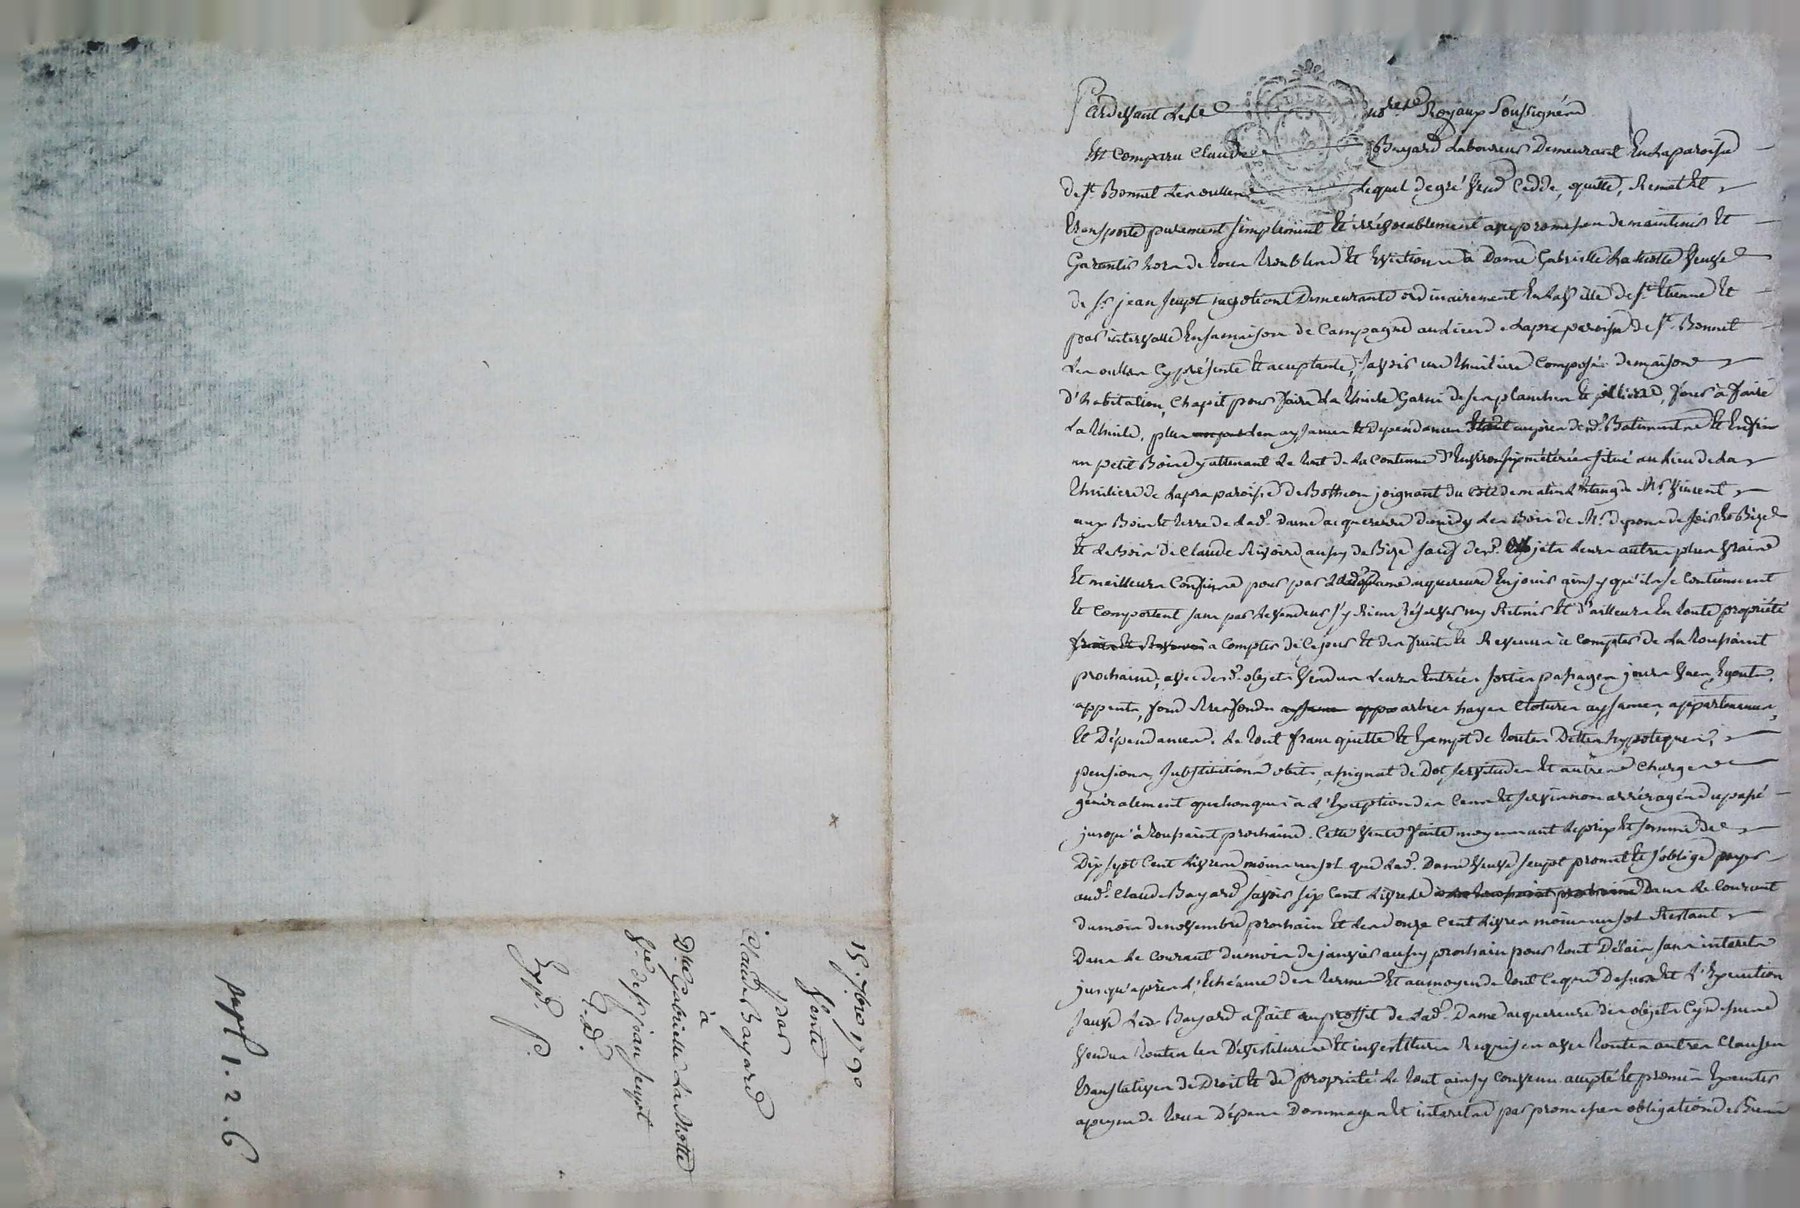 Pardevant Les No.res Royaux Soussignés
Est Comparu Claude Bayard Laboureur Demeurant En la paroisse
de St. Bonnet Les oulles Lequel de gré vend Cedde, quitte, Remet Et
transporte purement simplement Et irrévocablement avec promesse de maintenir Et
Garentir hors de tous troubles Et Evictions à Dame Gabrielle La Motte veuve
de Sr. jean Seyot negotiant Demeurante ordinairement En la ville de St. Etienne Et
par intervalle En sa maison de Campagne au Lieu de Lapra paroisse de St. Bonnet
Les oulles Cy présente Et aceptante, savoir une thuiliere Composée de maison
d'habitation, Chapit pour faire La thuile Garni de ses planches Et pilliers, four à faire
La thuile, plus Les aysances Et dependances desd. Batiments Et Enfin
un petit Bois y attenant Le tout de La Contenue d'Environ six métérées situé au Lieu de La
thuiliere de Lapra paroisse de Bothéon joignant du Coté de matin L'Etang de Mr. Vincent
aux Bois Et terre de Lad. Dame acquereure Demidy Les Bois de Mr. de de soir Et Bize
Et Le Bois de Claude Rivoire aussy de Bize sauf desd. objets Leurs autres plus vrais
Et meilleurs Confins pour par Lad. Dame acquereure En jouir ainsy qu'ils se Contiennent
Et Comportent sans par Le vendeur s'y Rien Réserver ny Retenir Et d'ailleurs En toute propriété
à Compter de Ce jour Et des fruits Et Revenus à Compter de La toussaint
prochaine, avec desd. objets vendus Leurs Entrées sorties passages jours vues Egouts,
appents, fond tresfonds arbres hayes Clotures aysances, appartenances,
Et Dépendances. Le tout franc quitte Et Exempt de toutes Dettes hypoteques,
pensions, substitutions obits, assignat de Dot, servitudes Et autres Charges
généralement quelconques à L'Exeption des Cens Et servis non arréragés du passé
jusqu'à toussaint prochaine. Cette vente faite moyennant Le prix Et somme de
Dix sept Cent Livres moins un sol que Lad. Dame veuve Seyot promet Et s'oblige payer
aud. Claude Bayard savoir six Cent Livres Dans Le Courant
du mois de novembre prochain Et Les onze Cent Livres moins un sol Restant
Dans Le Courant du mois de janvier aussy prochain pour tout Délai, sans interets
jusqu'après L'Echéance des termes Et au moyen de tout Ce que Dessus Et L'Execution
sauve Led. Bayard a fait au proffit de Lad. Dame acquereure des objets Cy dessus
vendus toutes Les Dévestitures Et investitures Requises avec toutes autres Clauses
translatives de Droit Et de propriété Le tout ainsy Convenu accepté Et promis Executer
à peyne de tous Dépens Dommages Et interets par promesses obligation de Biens
15 7bre 1790
Vente
par
Claude Bayard
à
D.lle Gabrielle La Motte
Vve. de Sr. jean Seyot
E. D.
Exp.
1. 2. 6